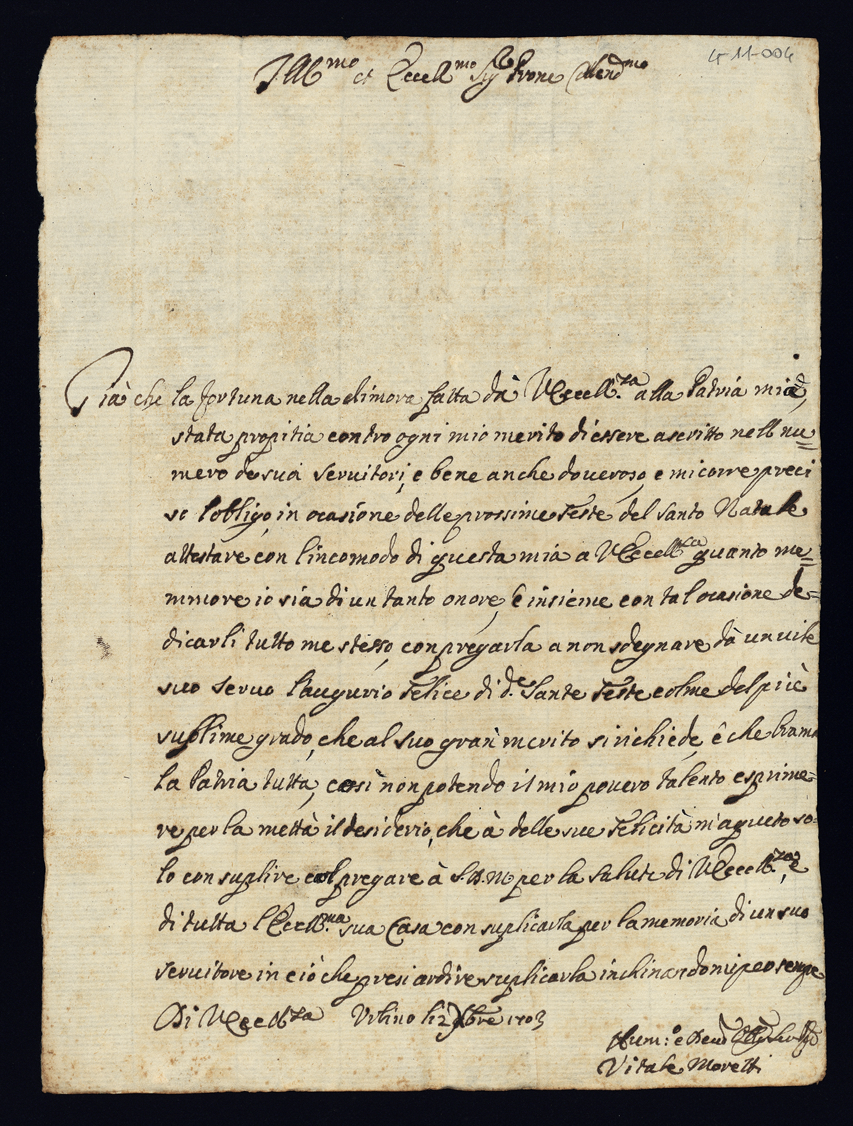 4 11-004
Ill.mo et Eccell.mo Sig.r Prone Colend.mo
Già che la fortuna nella dimora fatta dà V Eccell.za alla Patria mia è
stata propitia contro ogni mio merito di essere ascritto nell nu=
mero de suoi servitori, e bene anche doveroso, e mi corre preci
so l'obligo, in ocasione delle prossime Feste del Santo Natale
attestare con l'incomodo di questa mia a V Eccell.za quanto me=
mmore io sia di un tanto onore, e insieme con tal ocasione de=
dicarli tutto me stesso, con pregarla a non sdegnare dà un vile
suo servo l'augurio felice di d.e Sante Feste colme del più
sublime grado, che al suo gran merito si richiede, è che brama
la Patria tutta, così non potendo il mio povero talento esprime=
re per la mettà il desiderio, che à delle sue felicità m'aqueto so=
lo con suplire col pregare à S.D.M per la salute di V Eccell.za, e
di tutta l'Eccell.ma sua Casa con suplicarla per la memoria di un suo
servitore in ciò che presi ardire suplicarla inchinandomi per sempre
Di V Eccell.za Urbino li 2 Xbre 1703
Hum:o e Dev
Vitale Moretti